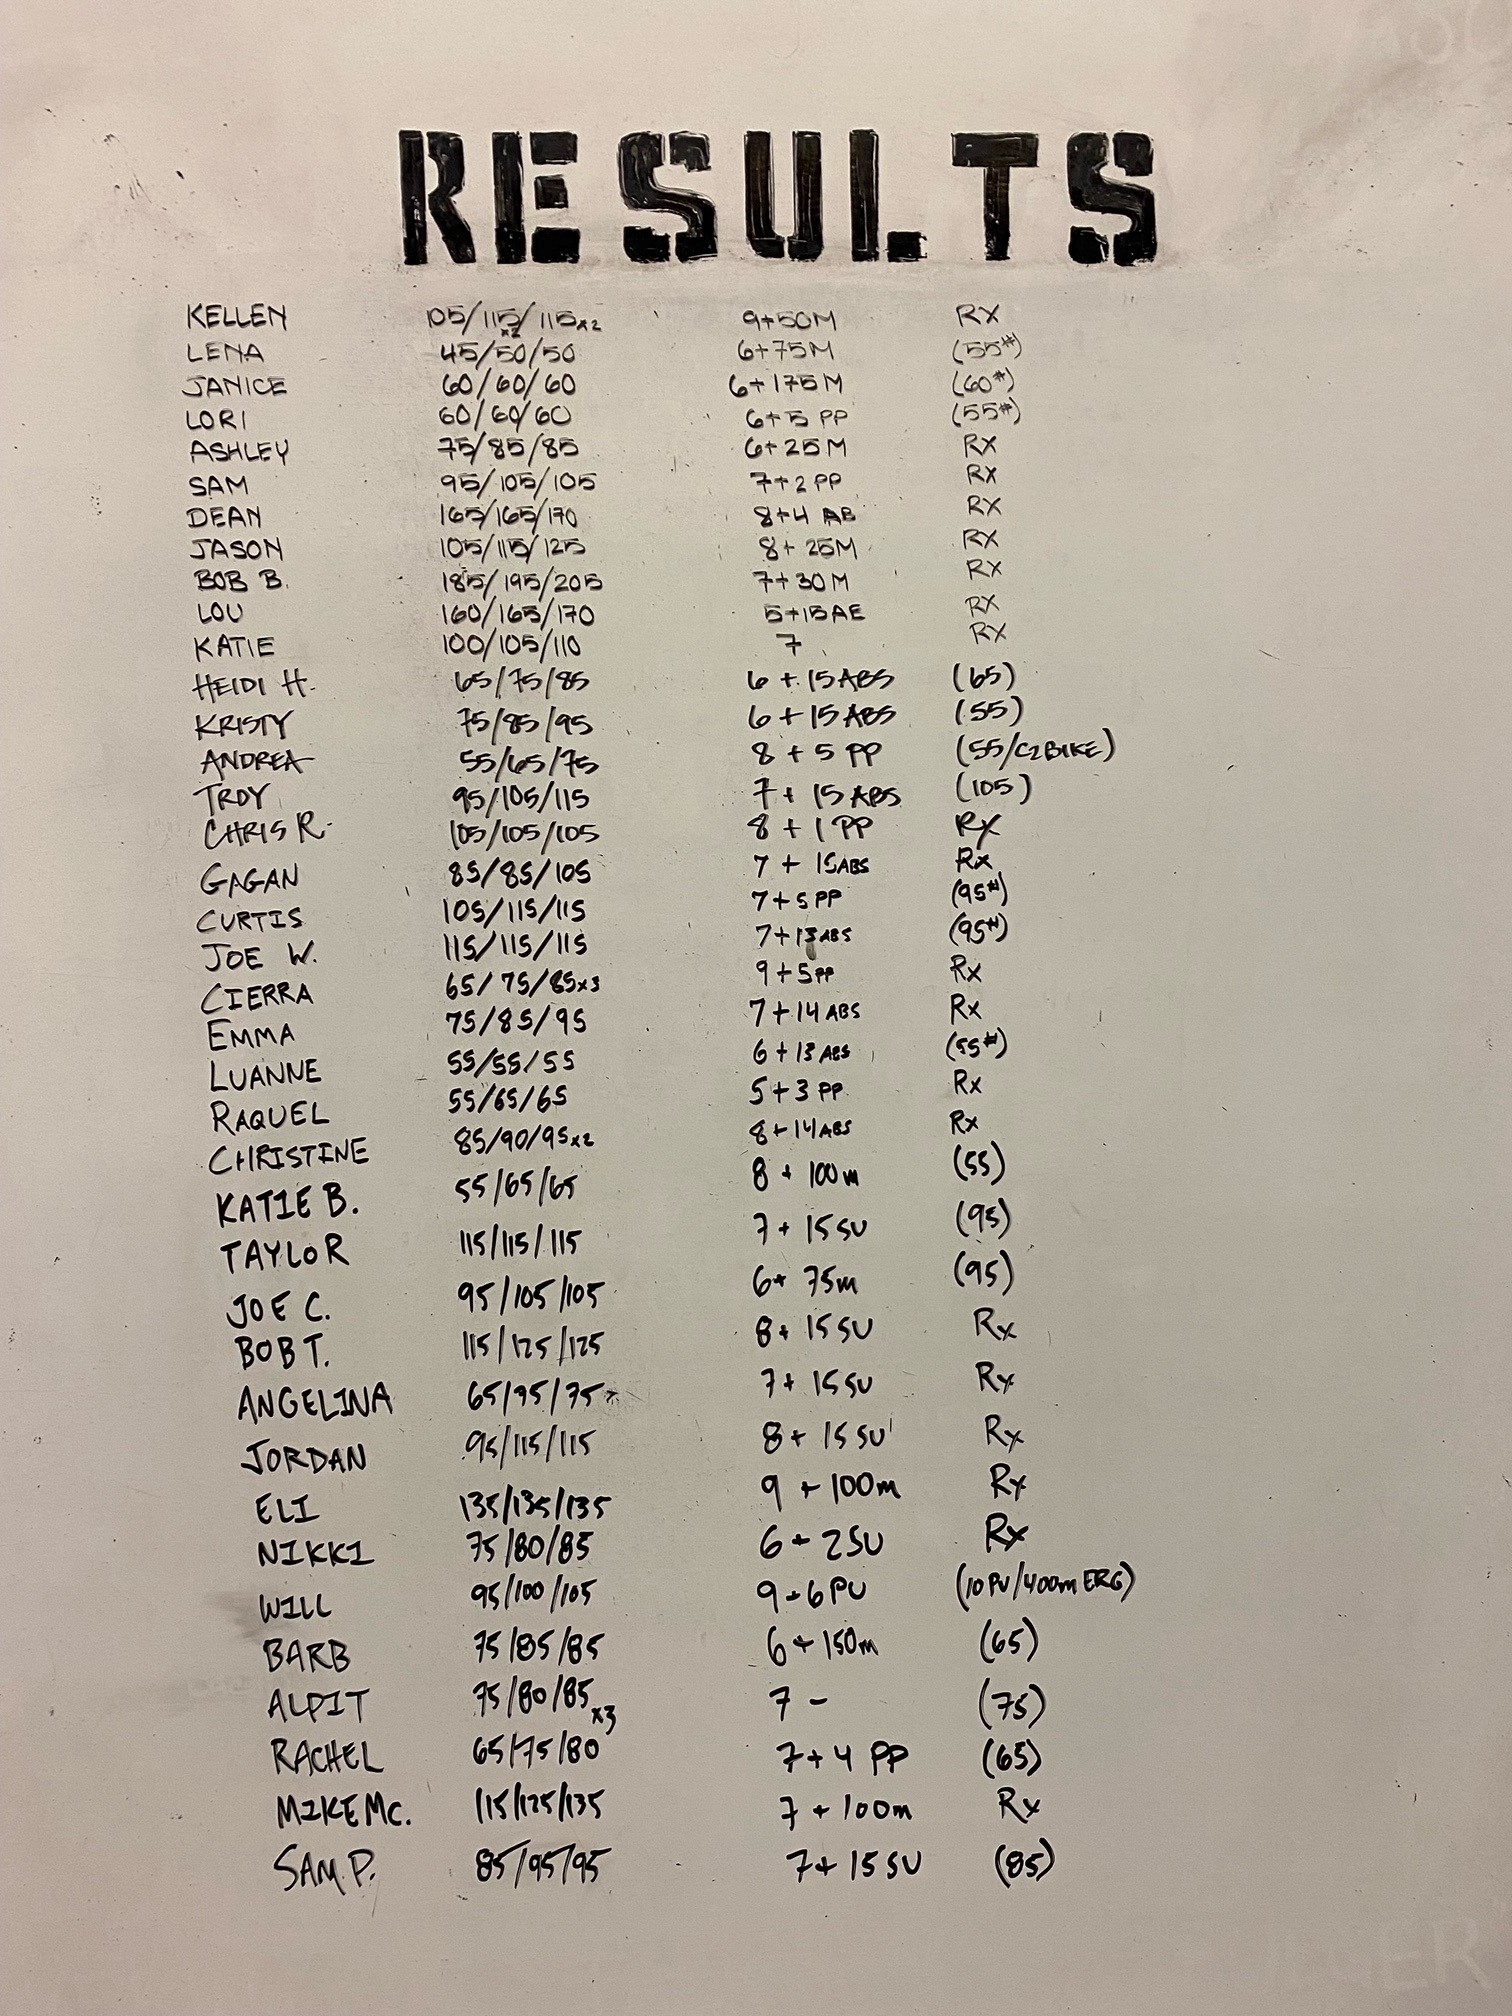 RESULTS
KELLEN 105/115x2/115x2 9+50M RX
LENA 45/50/50 6+75M (55#)
JANICE 60/60/60 6+175M (60#)
LORI 60/60/60 6+5 PP (55#)
ASHLEY 75/85/85 6+25M RX
SAM 95/105/105 7+2 PP RX
DEAN 165/165/170 8+4 AB RX
JASON 105/115/125 8+25M RX
BOB B. 185/195/205 7+30M RX
LOU 160/165/170 5+15AE RX
KATIE 100/105/110 7 RX
HEIDI H. 65/75/85 6 + 15 ABS (65)
KRISTY 75/85/95 6 + 15 ABS (55)
ANDREA 55/65/75 8 + 5 PP (55/C2 BIKE)
TROY 95/105/115 7 + 15 ABS (105)
CHRIS R. 105/105/105 8 + 1 PP Rx
GAGAN 85/85/105 7 + 15ABS Rx
CURTIS 105/115/115 7+5 PP (95#)
JOE W. 115/115/115 7+13ABS (95#)
CIERRA 65/75/85x3 9+5PP Rx
EMMA 75/85/95 7+14ABS Rx
LUANNE 55/55/55 6+13 ABS (55#)
RAQUEL 55/65/65 5+3 PP Rx
CHRISTINE 85/90/95x2 8+14ABS Rx
KATIE B. 55/65/65 8 + 100m (55)
TAYLOR 115/115/115 7 + 15 SU (95)
JOE C. 95/105/105 6+ 75m (95)
BOB T. 115/125/125 8+ 15 SU Rx
ANGELINA 65/75 7+ 15 SU Rx
JORDAN 95/115/115 8+ 15 SU Rx
ELI 135/135/135 9 + 100m Rx
NIKKI 75/80/85 6 + 2 SU Rx
WILL 95/100/105 9+6 PU (10 PU/400m ERG)
BARB 75/85/85 6 + 150m (65)
ALPIT 75/80/85x3 7 - (75)
RACHEL 65/75/80 7+4 PP (65)
MIKE MC. 115/125/135 7 + 100m Rx
SAM P. 85/95/95 7+ 15 SU (85)